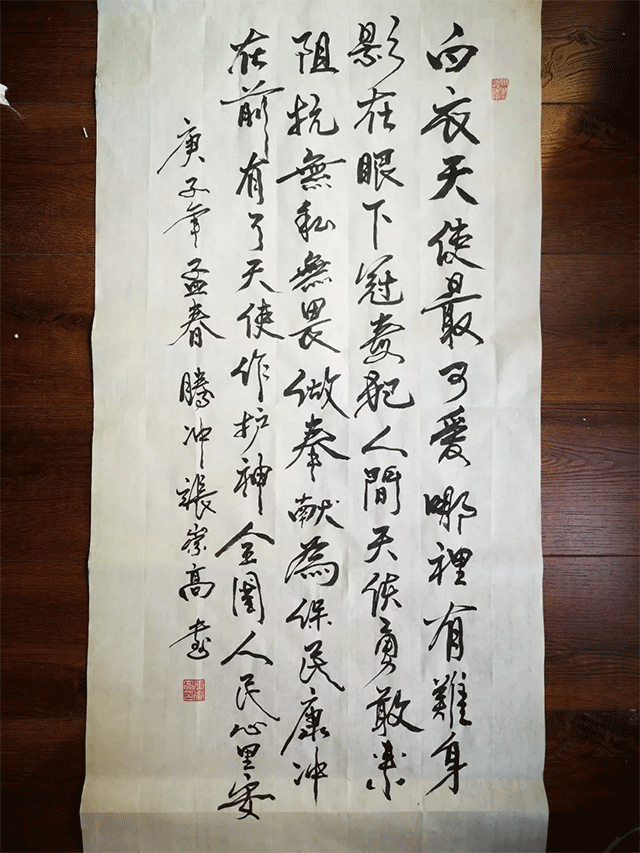 白衣天使最可爱哪裡有難身
影在眼下冠毒犯人間天使勇敢来
阻抗無私無畏做奉献為保民康冲
在前有了天使作护神全國人民心里安
庚子年孟春腾冲張崇高書